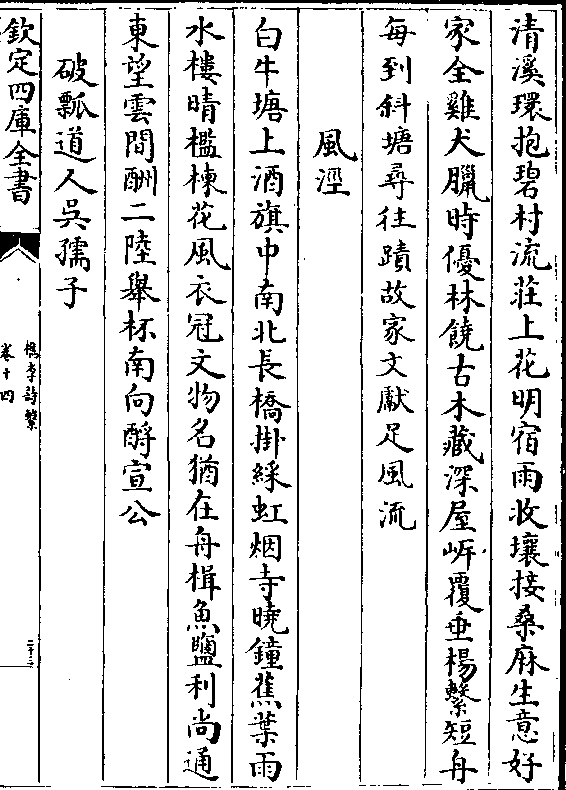 清溪環抱碧村流莊上花明宿雨收壤接桑麻生意好
家全雞犬臘時優林饒古木藏深屋㟁覆垂楊繫短舟
每到斜塘尋徃蹟故家文獻足風流
風涇
白牛塘上酒旗中南北長橋掛綵虹烟寺曉鐘蕉葉雨
水樓晴檻楝花風衣冠文物名猶在舟楫魚鹽利尚通
東望雲間酬二陸舉杯南向酹宣公
破瓢道人吳孺子
欽定四庫全書
檇李詩繫
卷十四
二十二